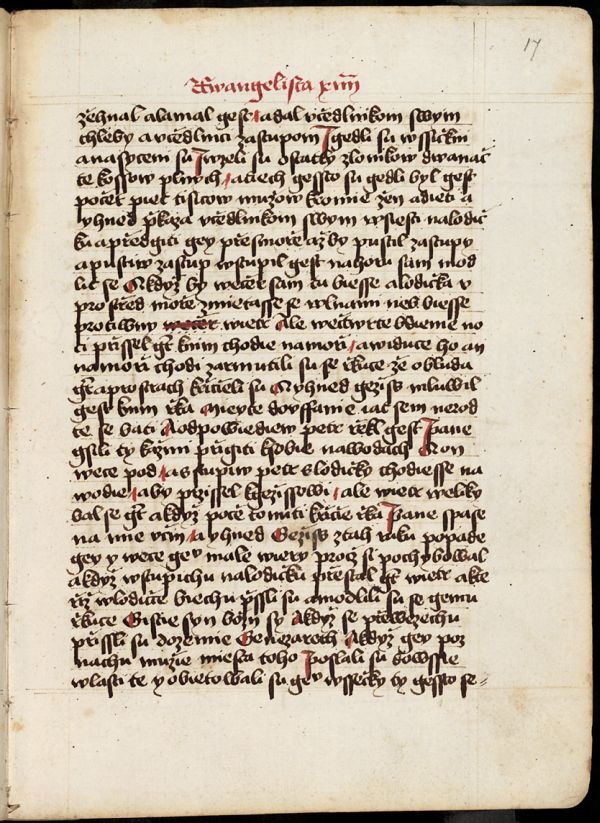 17
Ewangelista xiiii
żehnal a lamal gest a dal vcedlnikom swym
chleby a vcedlnici zastupom J gedli su wssickni
a nasyceni su J wzeli su ostatky zlomkow dwanac
te kossow plnych a tiech gessto su gedli byl gest
pocet piet tisicow muzow kromie zen a dieti a
yhned prikaza vcedlnikom swym wsiesti na lodic
ku a predgiti gey przes morze az by pustil zastupy
a pustiw zastup wstupil gest na horu sam mod
lit se A kdyz by wecer sam tu biesse a lodicka v
prostred morze zmietasse se wlnami neb biesse
protiwny wietr Ale we cztwrte bdienie no
ci prissel gt k nim chodie na morzi a widuce ho an
na morzi chodi zarmutili su se rkuce ze obluda
gt a pro strach kriceli su A yhned gezis mluwil
gest k nim rka Mieyte dowffanie iat sem nerod
te se bati A odpowiediew petr rzekl gest Pane
gsi li ty kaz mi prigiti k tobie na wodach A on
wece pod a stupiw petr s lodicky chodiesse na
wodie aby przissel k gezissowi ale wietr weliky
bal se gt a kdyz poce tonuti krice rka Pane spase
na mie vcin a yhned Gezis ztah ruku popade
gey y wece gey male wiery procz si pochybowal
a kdyz wstupichu na lodicku prestal gt wietr a kte
rziz w lodicce biechu prissli su a modlili su se gemu
rkuce Gistie syn bozi sy A kdyz se przewezechu
prissli su do zemie Genezareth A kdyz gey poz
nachu muzie miesta toho Poslali su do wssie
wlasti te y obietowali su gey wssecky ty gessto se